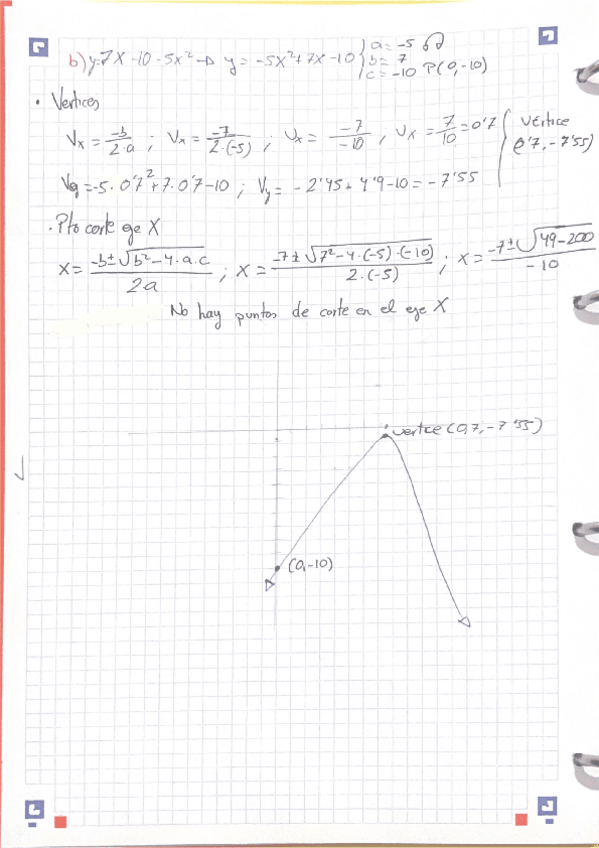 b) y=7X-10-5x² → y = -5x²+7x-10 { a=-5 ∩
b= 7
c= -10 P(0,-10)
• Vertices
Vx = -b/2·a ; Vx = -7/2·(-5) ; Vx = -7/-10 , Vx = 7/10 = 0'7 { Vértice
(0'7, -7'55)
Vy = -5· 0'7²+7·0'7-10 ; Vy = -2'45+4'9-10 = -7'55
· Pto corte eje X
X= -b±√b²-4·a·c / 2a ; X= -7±√7²-4·(-5)·(-10) / 2·(-5) ; X= -7±√49-200 / -10
No hay puntos de corte en el eje X
vertce (0,7, -7'55)
(0,-10)